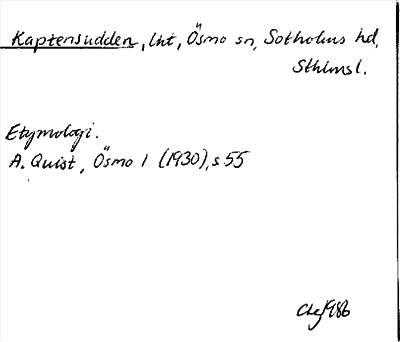 Kaptensudden, lht, Ösmo sn, Sotholms hd,
Sthlmsl.
Etymologi.
A. Quist, Ösmo 1 (1930), s 55
1986